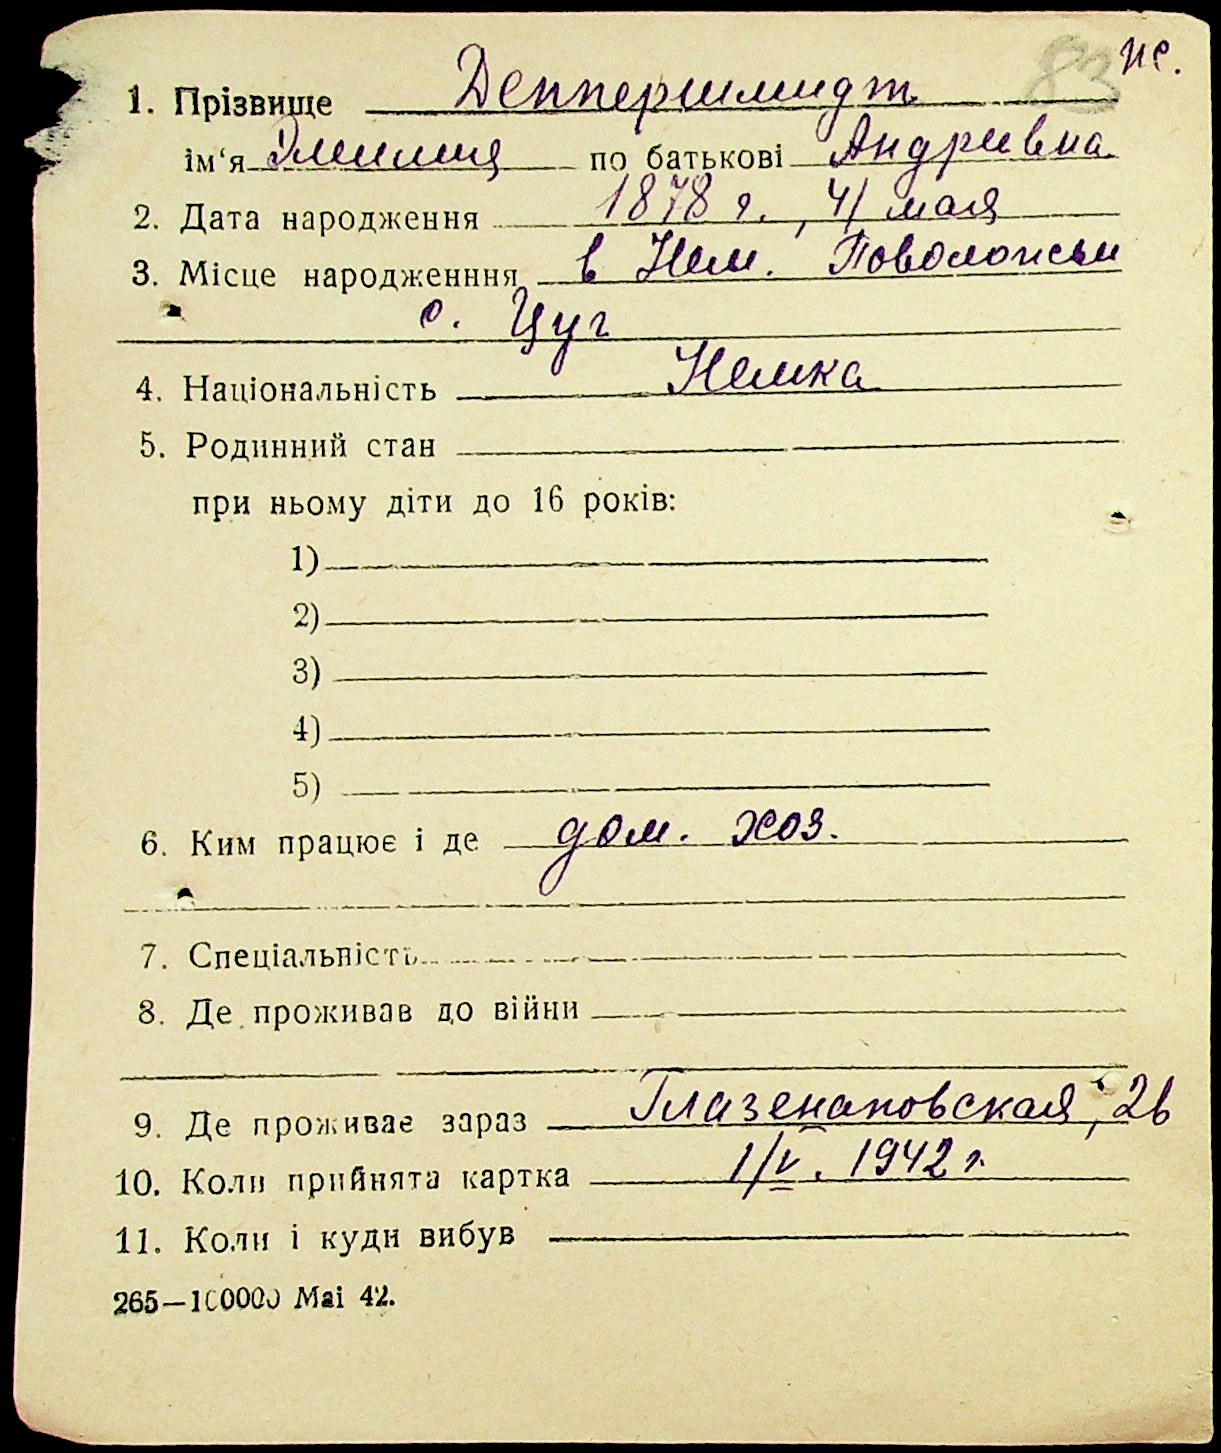 83 не.
1. Прізвище Деппершмидт
ім‘я Эмилия по батькові Андреевна
2. Дата народження 1878 г., 4/ мая
3. Місце народженння в Нем. Поволожьи
с. Цуг
4. Національність Немка
5. Родинний стан
при ньому діти до 16 років:
1)
2)
3)
4)
5)
6. Ким працює і де дом. хоз.
7. Спеціальність
8. Де проживав до війни
9. Де проживає зараз Глазенаповская, 2в
10. Коли прийнята картка 1/V. 1942 г.
11. Коли і куди вибув
265—100000 Маі 42.